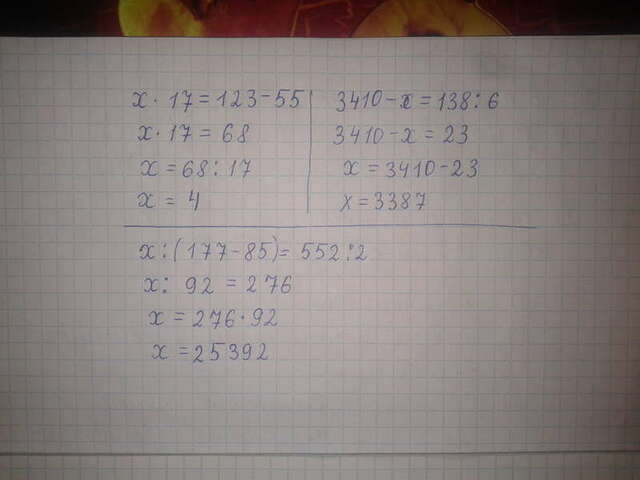 x · 17 = 123 - 55
x · 17 = 68
x = 68 : 17
x = 4
3410 - x = 138 : 6
3410 - x = 23
x = 3410 - 23
x = 3387
x : (177 - 85) = 552 : 2
x : 92 = 276
x = 276 · 92
x = 25392